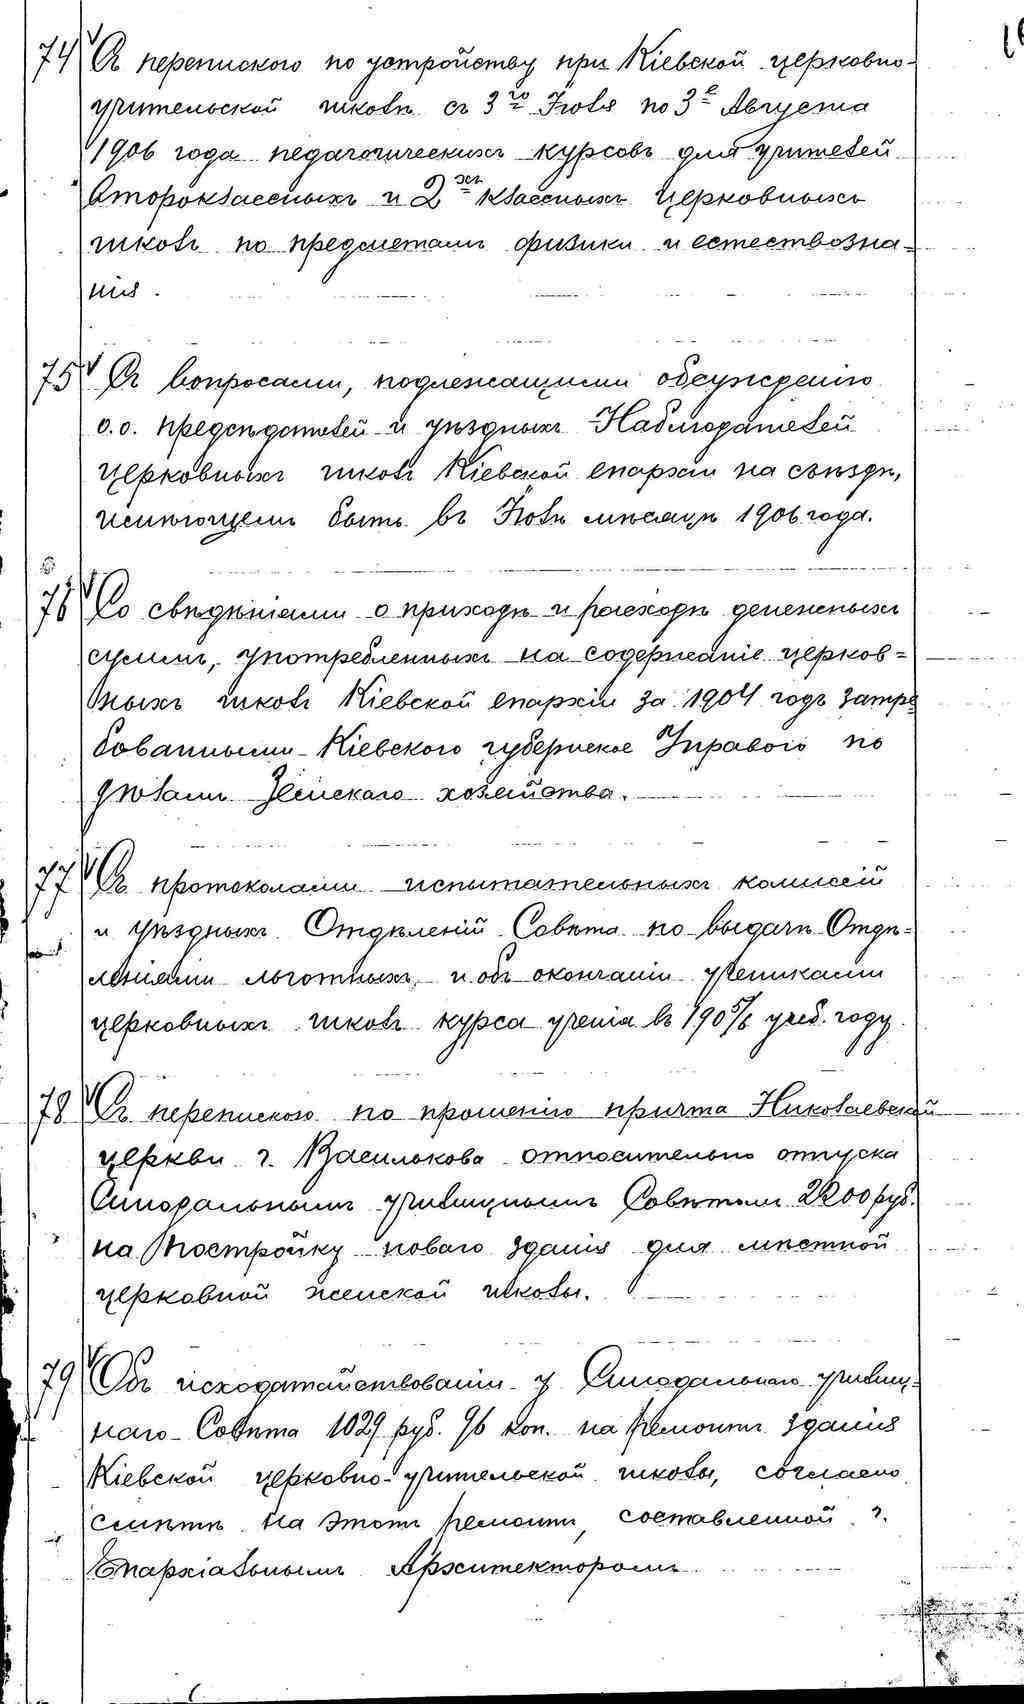 74 Съ перепискою по устройству при Кіевской церковно-
учительской школѣ съ 3го Іюля по 3е Августа
1906 года педагогическихъ курсовъ для учителей
Второклассныхъ и 2хъ классныхъ церковныхъ
школъ по предметамъ физики и естествозна-
нія.
75 Съ вопросами, подлежащими обсужденію
о.о. предсѣдателей и уѣздныхъ Наблюдателей
церковныхъ школъ Кіевской епархіи на съѣздѣ,
имѣющемъ быть въ Іюлѣ мѣсяцѣ 1906 года.
76 Со свѣдѣніями о приходѣ и расходѣ денежныхъ
суммъ, употребленныхъ на содержаніе церков-
ныхъ школъ Кіевской епархіи за 1904 годъ затре-
бованными Кіевскою губернскою Управою по
дѣламъ Земскаго хозяйства.
77 Съ протоколами испытательныхъ комиссій
и уѣздныхъ Отдѣленій Совѣта по выдачѣ Отдѣ-
леніями льготныхъ и объ окончаніи учениками
церковныхъ школъ курса ученія въ 1905/6 учеб. году.
78 Съ перепискою по прошенію причта Николаевской
церкви г. Василькова относительно отпуска
Синодальнымъ училищнымъ Совѣтомъ 2200 руб.
на постройку новаго зданія для мѣстной
церковной женской школы.
79 Объ исходатайствованіи у Синодальнаго училищ-
наго Совѣта 1029 руб. 96 коп. на ремонтъ зданія
Кіевской церковно-учительской школы, согласно
смѣтѣ на этотъ ремонтъ, составленной г.
Епархіальнымъ Архитекторомъ